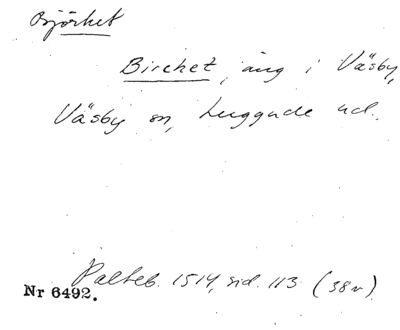 Björket
Bircket, äng i Väsby,
Väsby sn, Luggude hd.
Palteb. 1514, sid. 113 (38v)
Nr 6492.